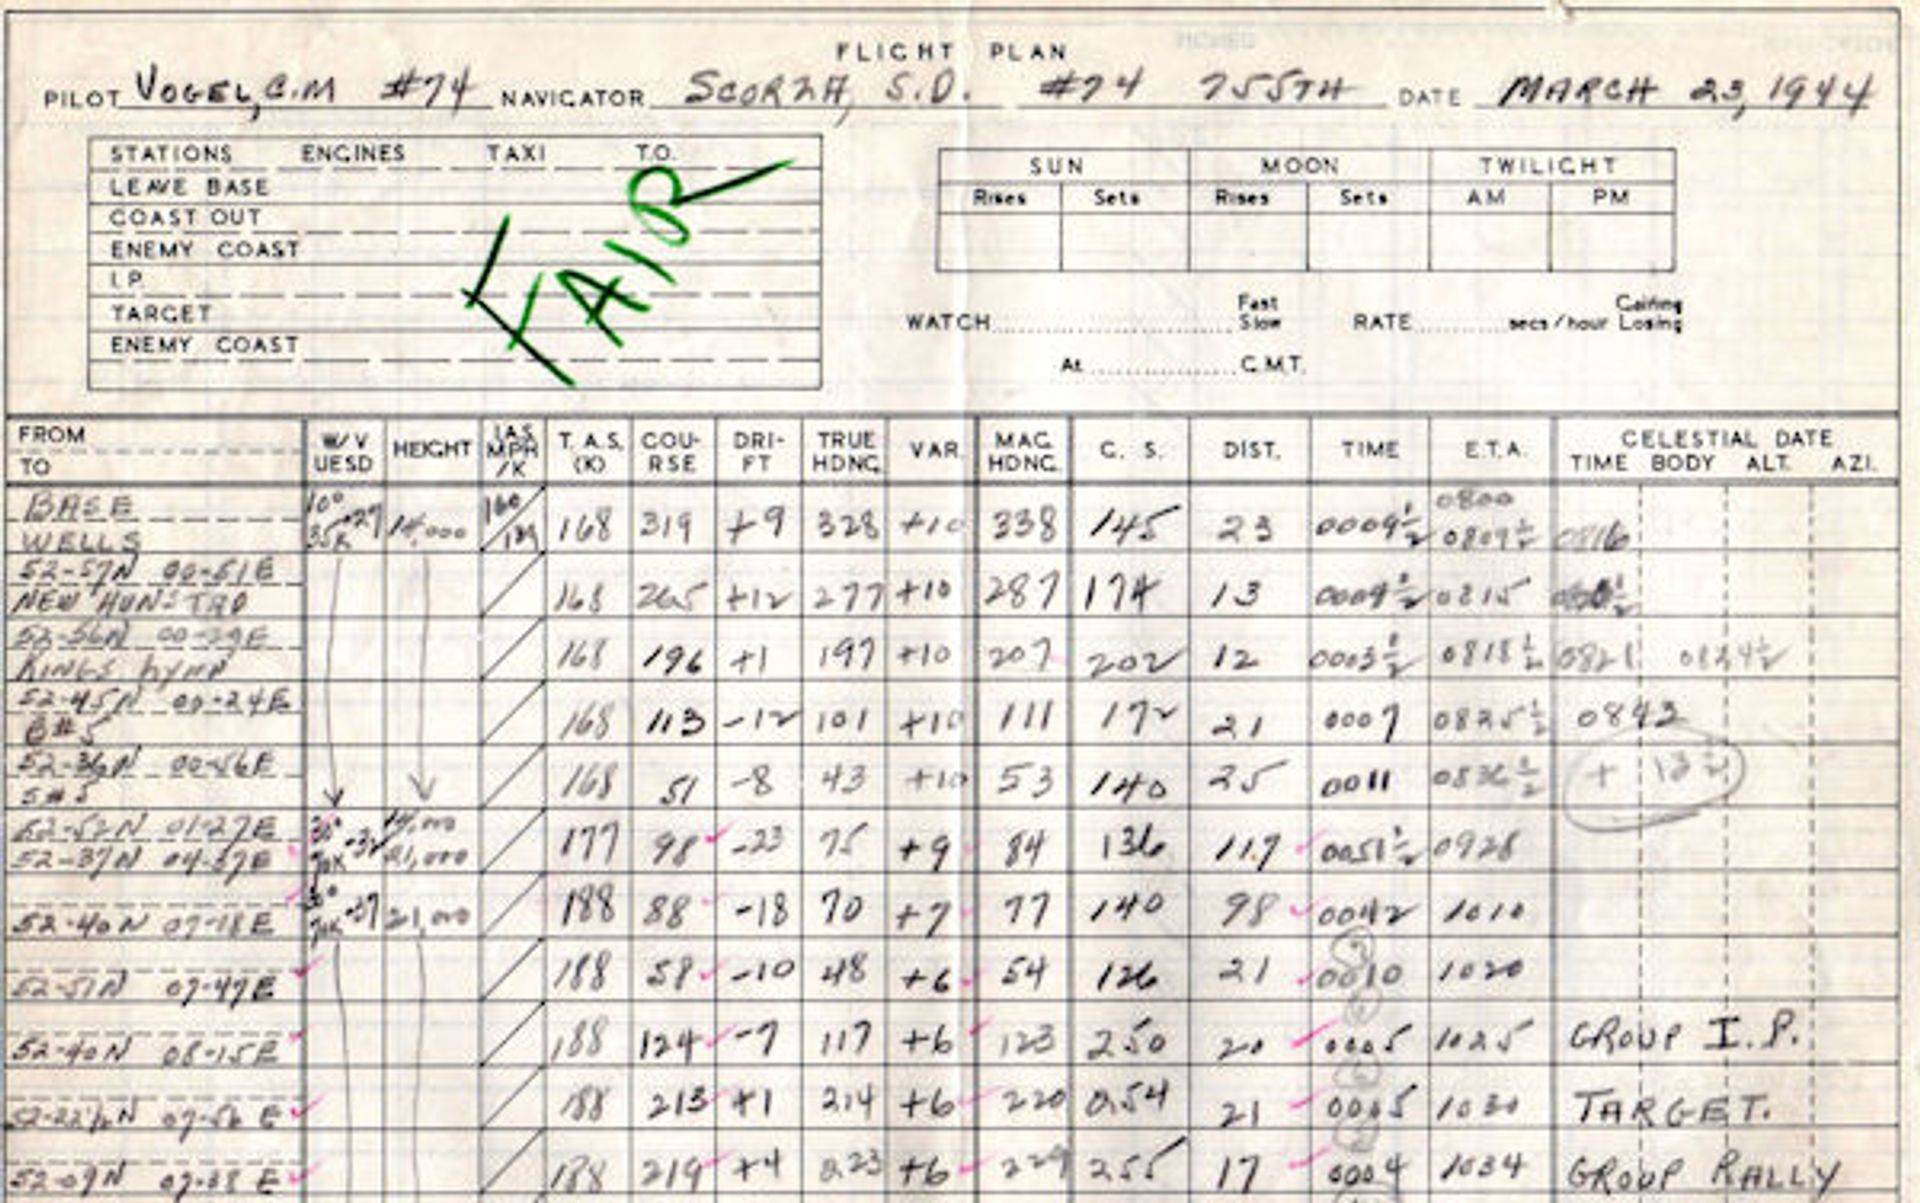 FLIGHT PLAN
PILOT VOGEL, C.M #74 NAVIGATOR SCORZA, S.D. #74 755TH DATE MARCH 23, 1944
STATIONS ENGINES TAXI T.O.
LEAVE BASE
COAST OUT
ENEMY COAST
I.P.
TARGET
ENEMY COAST
FAIR
SUN MOON TWILIGHT
Rises Sets Rises Sets AM PM
WATCH Fast Slow RATE secs/hour Gaining Losing
At G.M.T.
FROM TO W/V UESD HEIGHT I.A.S. MPH /K T.A.S. (K) COU-RSE DRI-FT TRUE HDNG. VAR. MAG. HDNG. G. S. DIST. TIME E.T.A. CELESTIAL DATE TIME BODY ALT. AZI.
BASE 10° -29 160 0800
WELLS 35K 14,000 /139 168 319 +9 328 +10 338 145 23 0009½ 0809½ 0816
52-57N 00-51E
NEW HUNSTAD 168 265 +12 277 +10 287 174 13 0004½ 0815
52-56N 00-29E
KINGS LYNN 168 196 +1 197 +10 207 202 12 0003½ 0818½ 0821 0824½
52-45N 00-24E
B#5 168 113 -12 101 +10 111 172 21 0007 0825½ 0843
52-36N 00-56E
S#5 168 51 -8 43 +10 53 140 25 0011 0836½ + 13½
52-52N 01-27E 30° -32 14,000
52-37N 04-37E 70K 21,000 177 98 -23 75 +9 84 136 117 0051½ 0928
52-40N 07-18E 30° 70K -37 21,000 188 88 -18 70 +7 77 140 98 0042 1010
52-51N 07-47E 188 58 -10 48 +6 54 126 21 0010 1020
52-40N 08-15E 188 124 -7 117 +6 123 250 20 0005 1025 GROUP I.P.
52-22½N 07-56E 188 213 +1 214 +6 220 254 21 0005 1030 TARGET.
52-09N 07-38E 188 219 +4 223 +6 229 255 17 0004 1034 GROUP RALLY